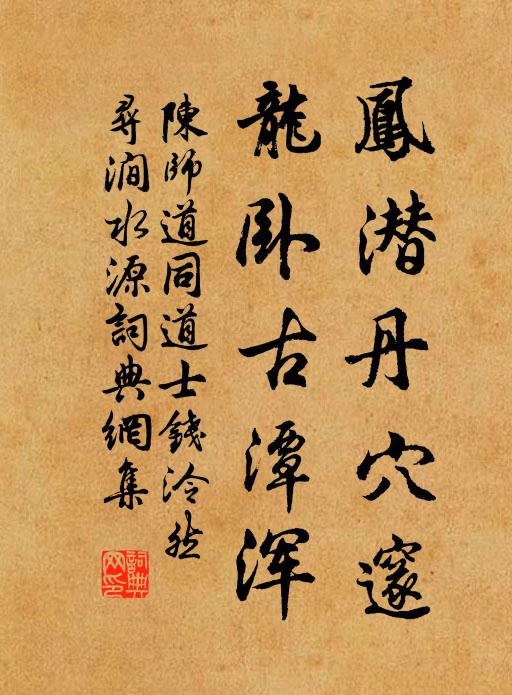 鳳潜丹穴邃
龍卧古潭浑
陳師道同道士錢泠然
尋澗水源詞典網集
詞典网印